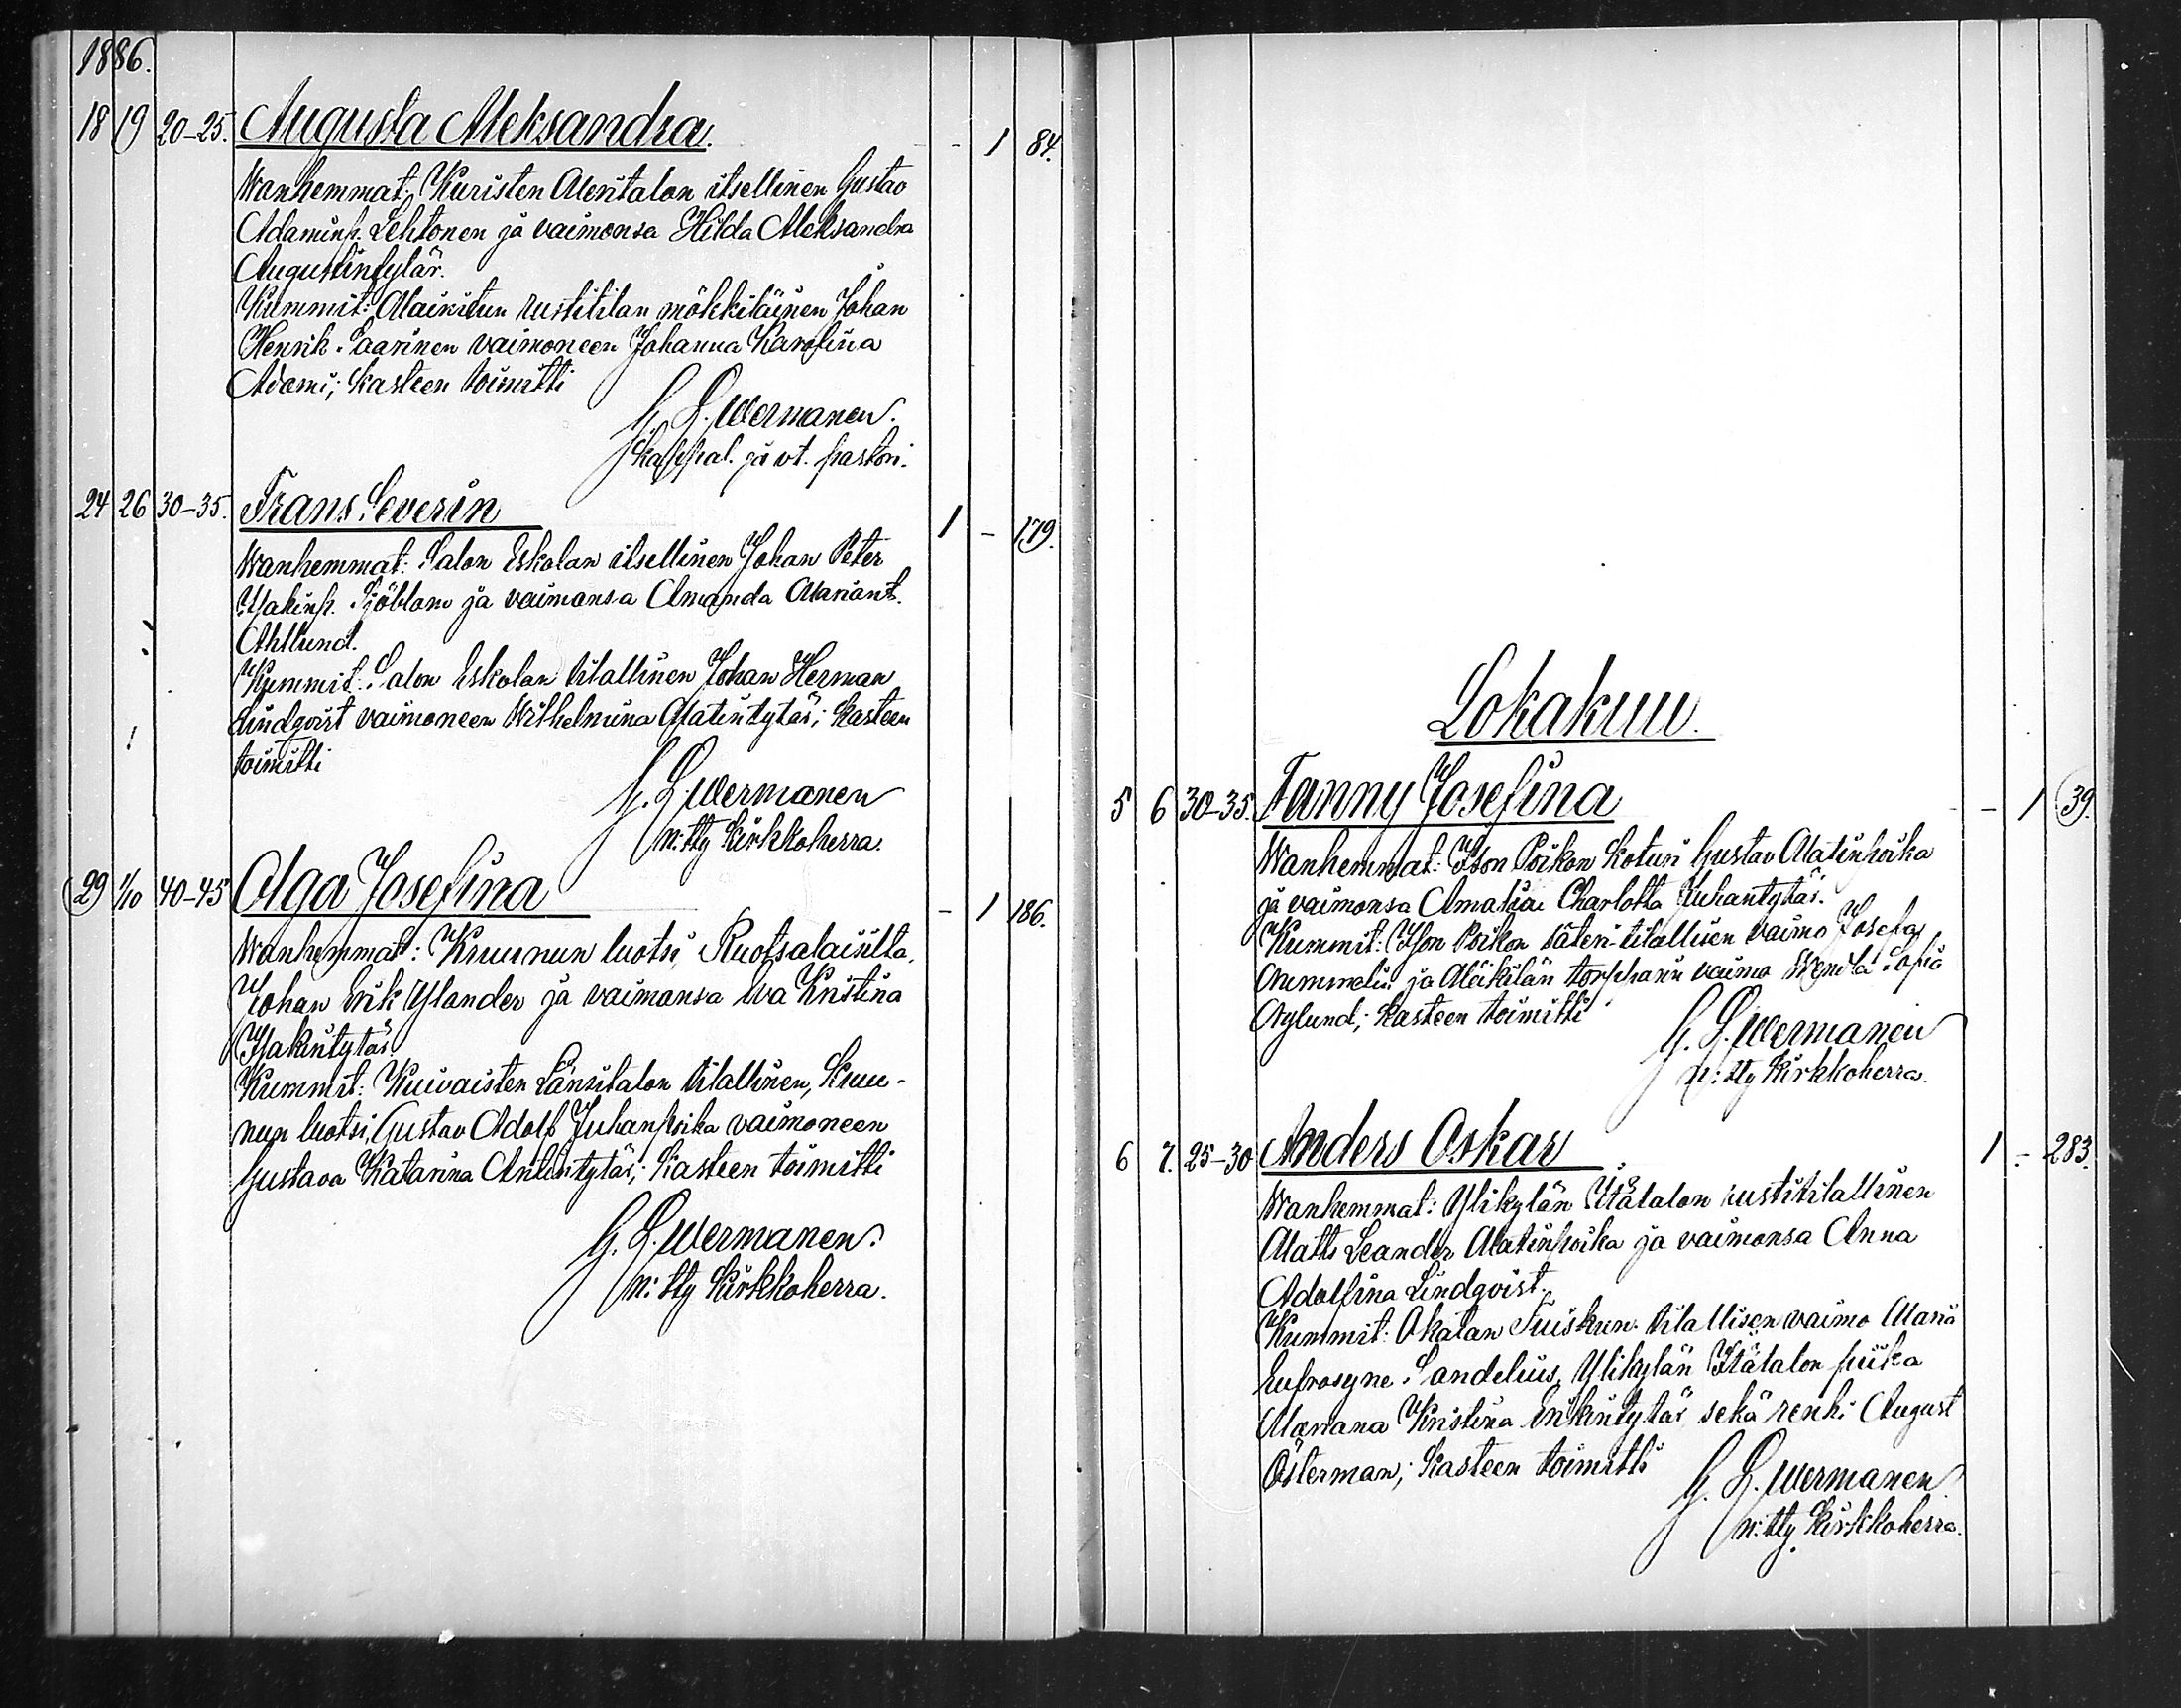 1886.
18 19 20-25. Augusta Aleksandra. - 1 84.
Wanhemmat: Kuristen Meritalon itsellinen Gustav
Adaminp. Lehtonen ja vaimonsa Hilda Aleksandra
Augustintytär.
Kummit: rustitilan mökkiläinen Johan
Henrik Saarinen vaimoneen Johanna Karolina
Adami; kasteen toimitti
G. L. Wermanen.
kappal. ja vt. pastori.
24 26 30-35. Frans Severin 1 - 179.
Wanhemmat: Salon Eskolan itsellinen Johan Peter
Isakinp. Sjöblom ja vaimonsa Amanda Mariant.
Ahllund.
Kummit: Salon Eskolan tilallinen Johan Herman
Lindqvist vaimoneen Wilhelmina Matintytär; kasteen
toimitti
G. L. Wermanen
n:tty kirkkoherra.
29 1/10 40-45 Olga Josefina - 1 186.
Wanhemmat: Kruunun luotsi, Ruotsalaisilta,
Johan Erik Ylander ja vaimonsa Eva Kristina
Isakintytär.
Kummit: Kuivaisten Länsitalon tilallinen, Kruu-
nun luotsi, Gustav Adolf Juhanpoika vaimoneen
Gustava Katarina Antintytär; kasteen toimitti
G. L. Wermanen.
n:tty kirkkoherra.
Lokakuu.
5 6 30-35. Fanny Josefina - 1 39.
Wanhemmat: Ison Poikon koturi Gustav Matinpoika
ja vaimonsa Amalia Charlotta Juhantytär.
Kummit: Ison Poikon säteri-tilallisen vaimo Josefa
Nummelin ja Meikilän torpparin vaimo Wendla Sofia
Nylund; kasteen toimitti
G. L. Wermanen
n:tty kirkkoherra.
6 7. 25-30 Anders Oskar 1 - 283.
Wanhemmat: Ylikylän Itätalon rustitilallinen
Matts Leander Matinpoika ja vaimonsa Anna
Adolfina Lindqvist.
Kummit: Tuiskun tilallisen vaimo Maria
Eufrosyne Sandelius, Ylikylän Itätalon piika
Mariana Kristina Erikintytär sekä renki August
Österman; kasteen toimitti
G. L. Wermanen
n:tty kirkkoherra.